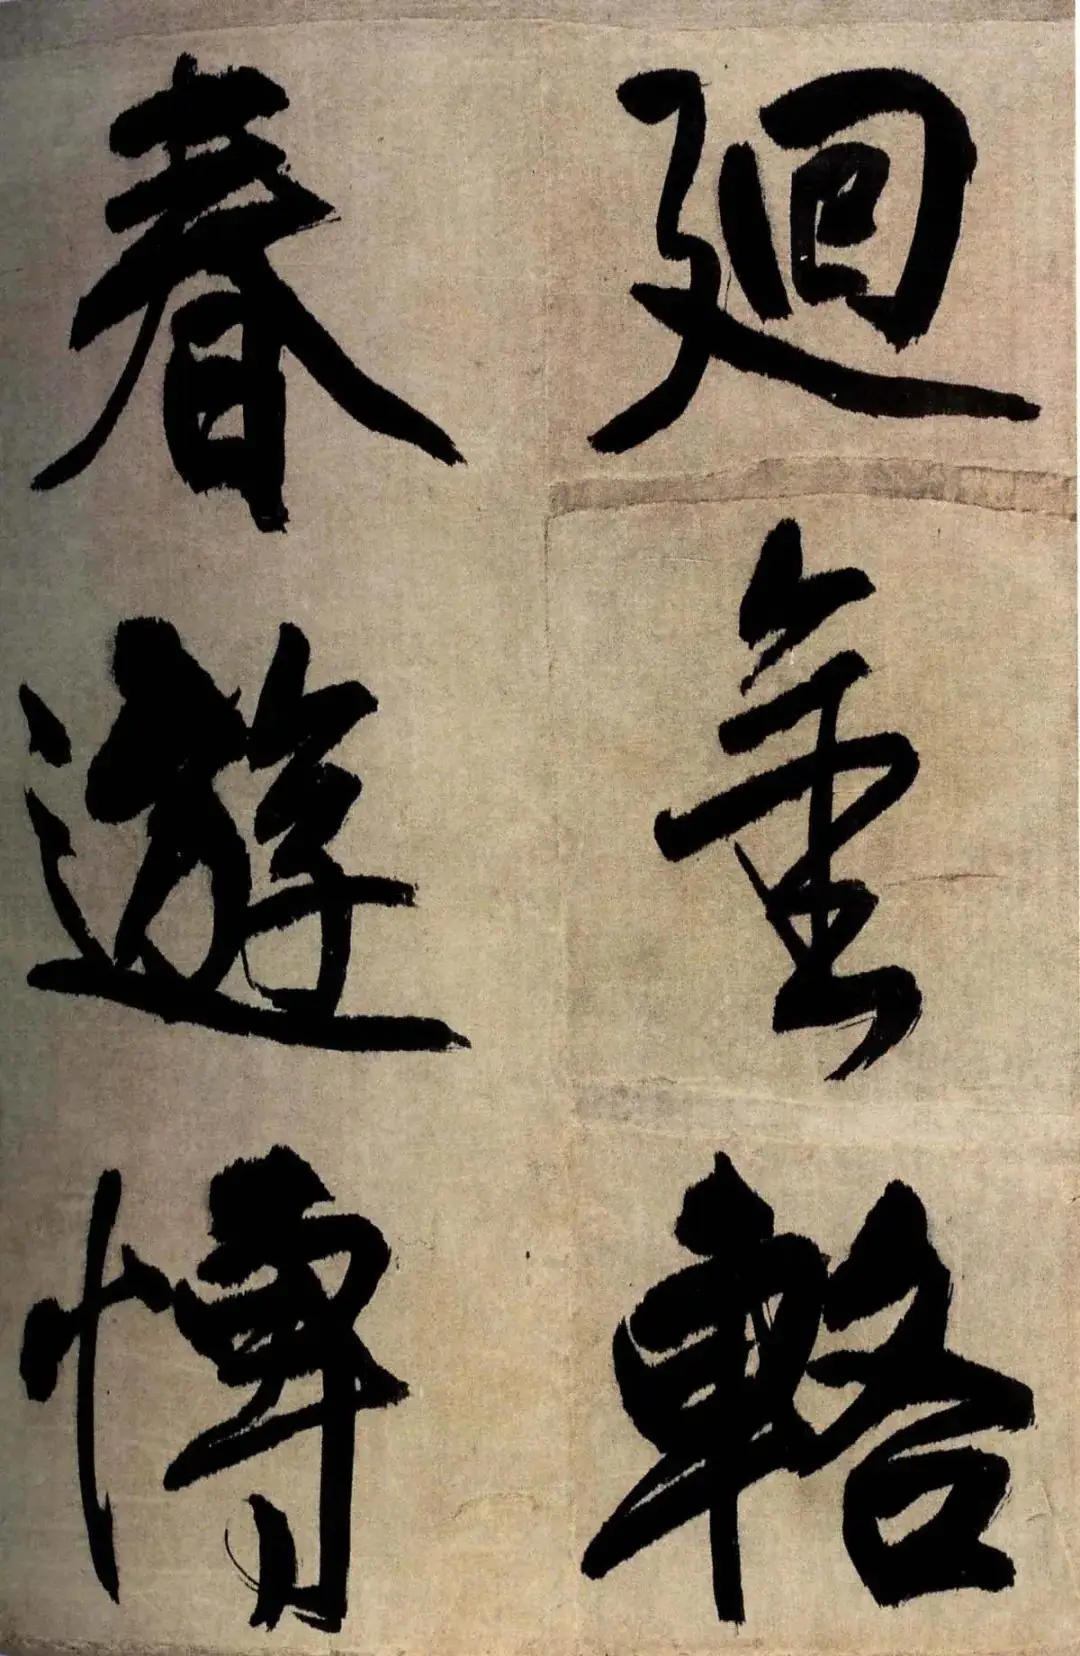 廻金輅
春遊博